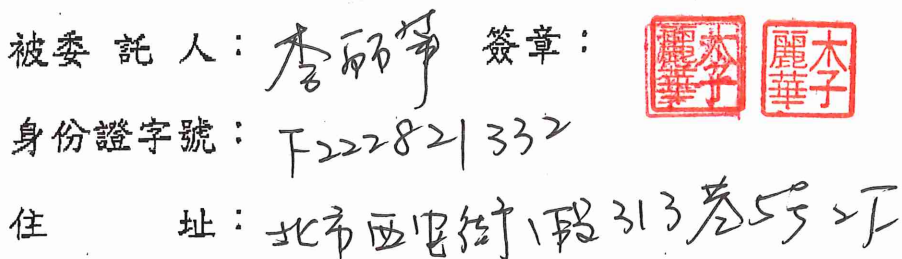 被委託人：李丽華 簽章：李麗華 李麗華
身份證字號：F222821332
住址：北市西安街1段313巷5号2F